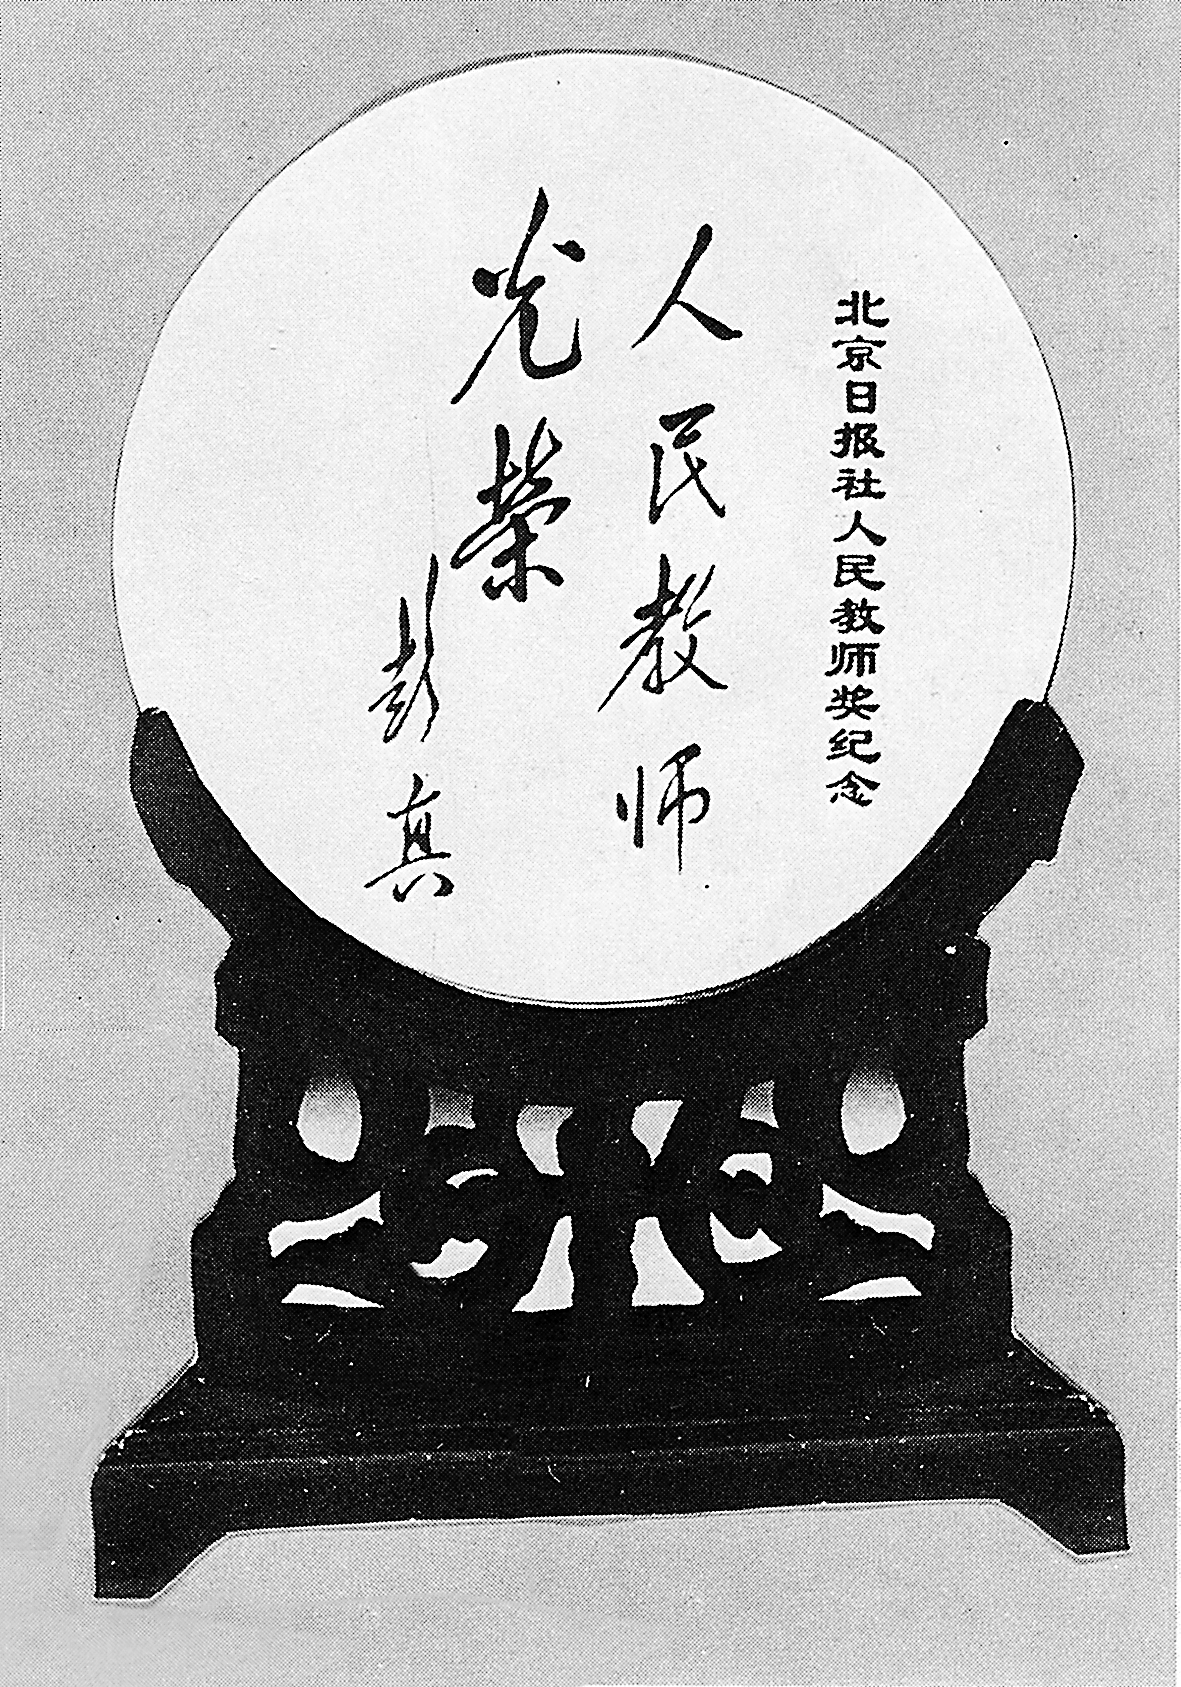 北京日报社人民教师奖纪念
人民教师
光荣
彭真